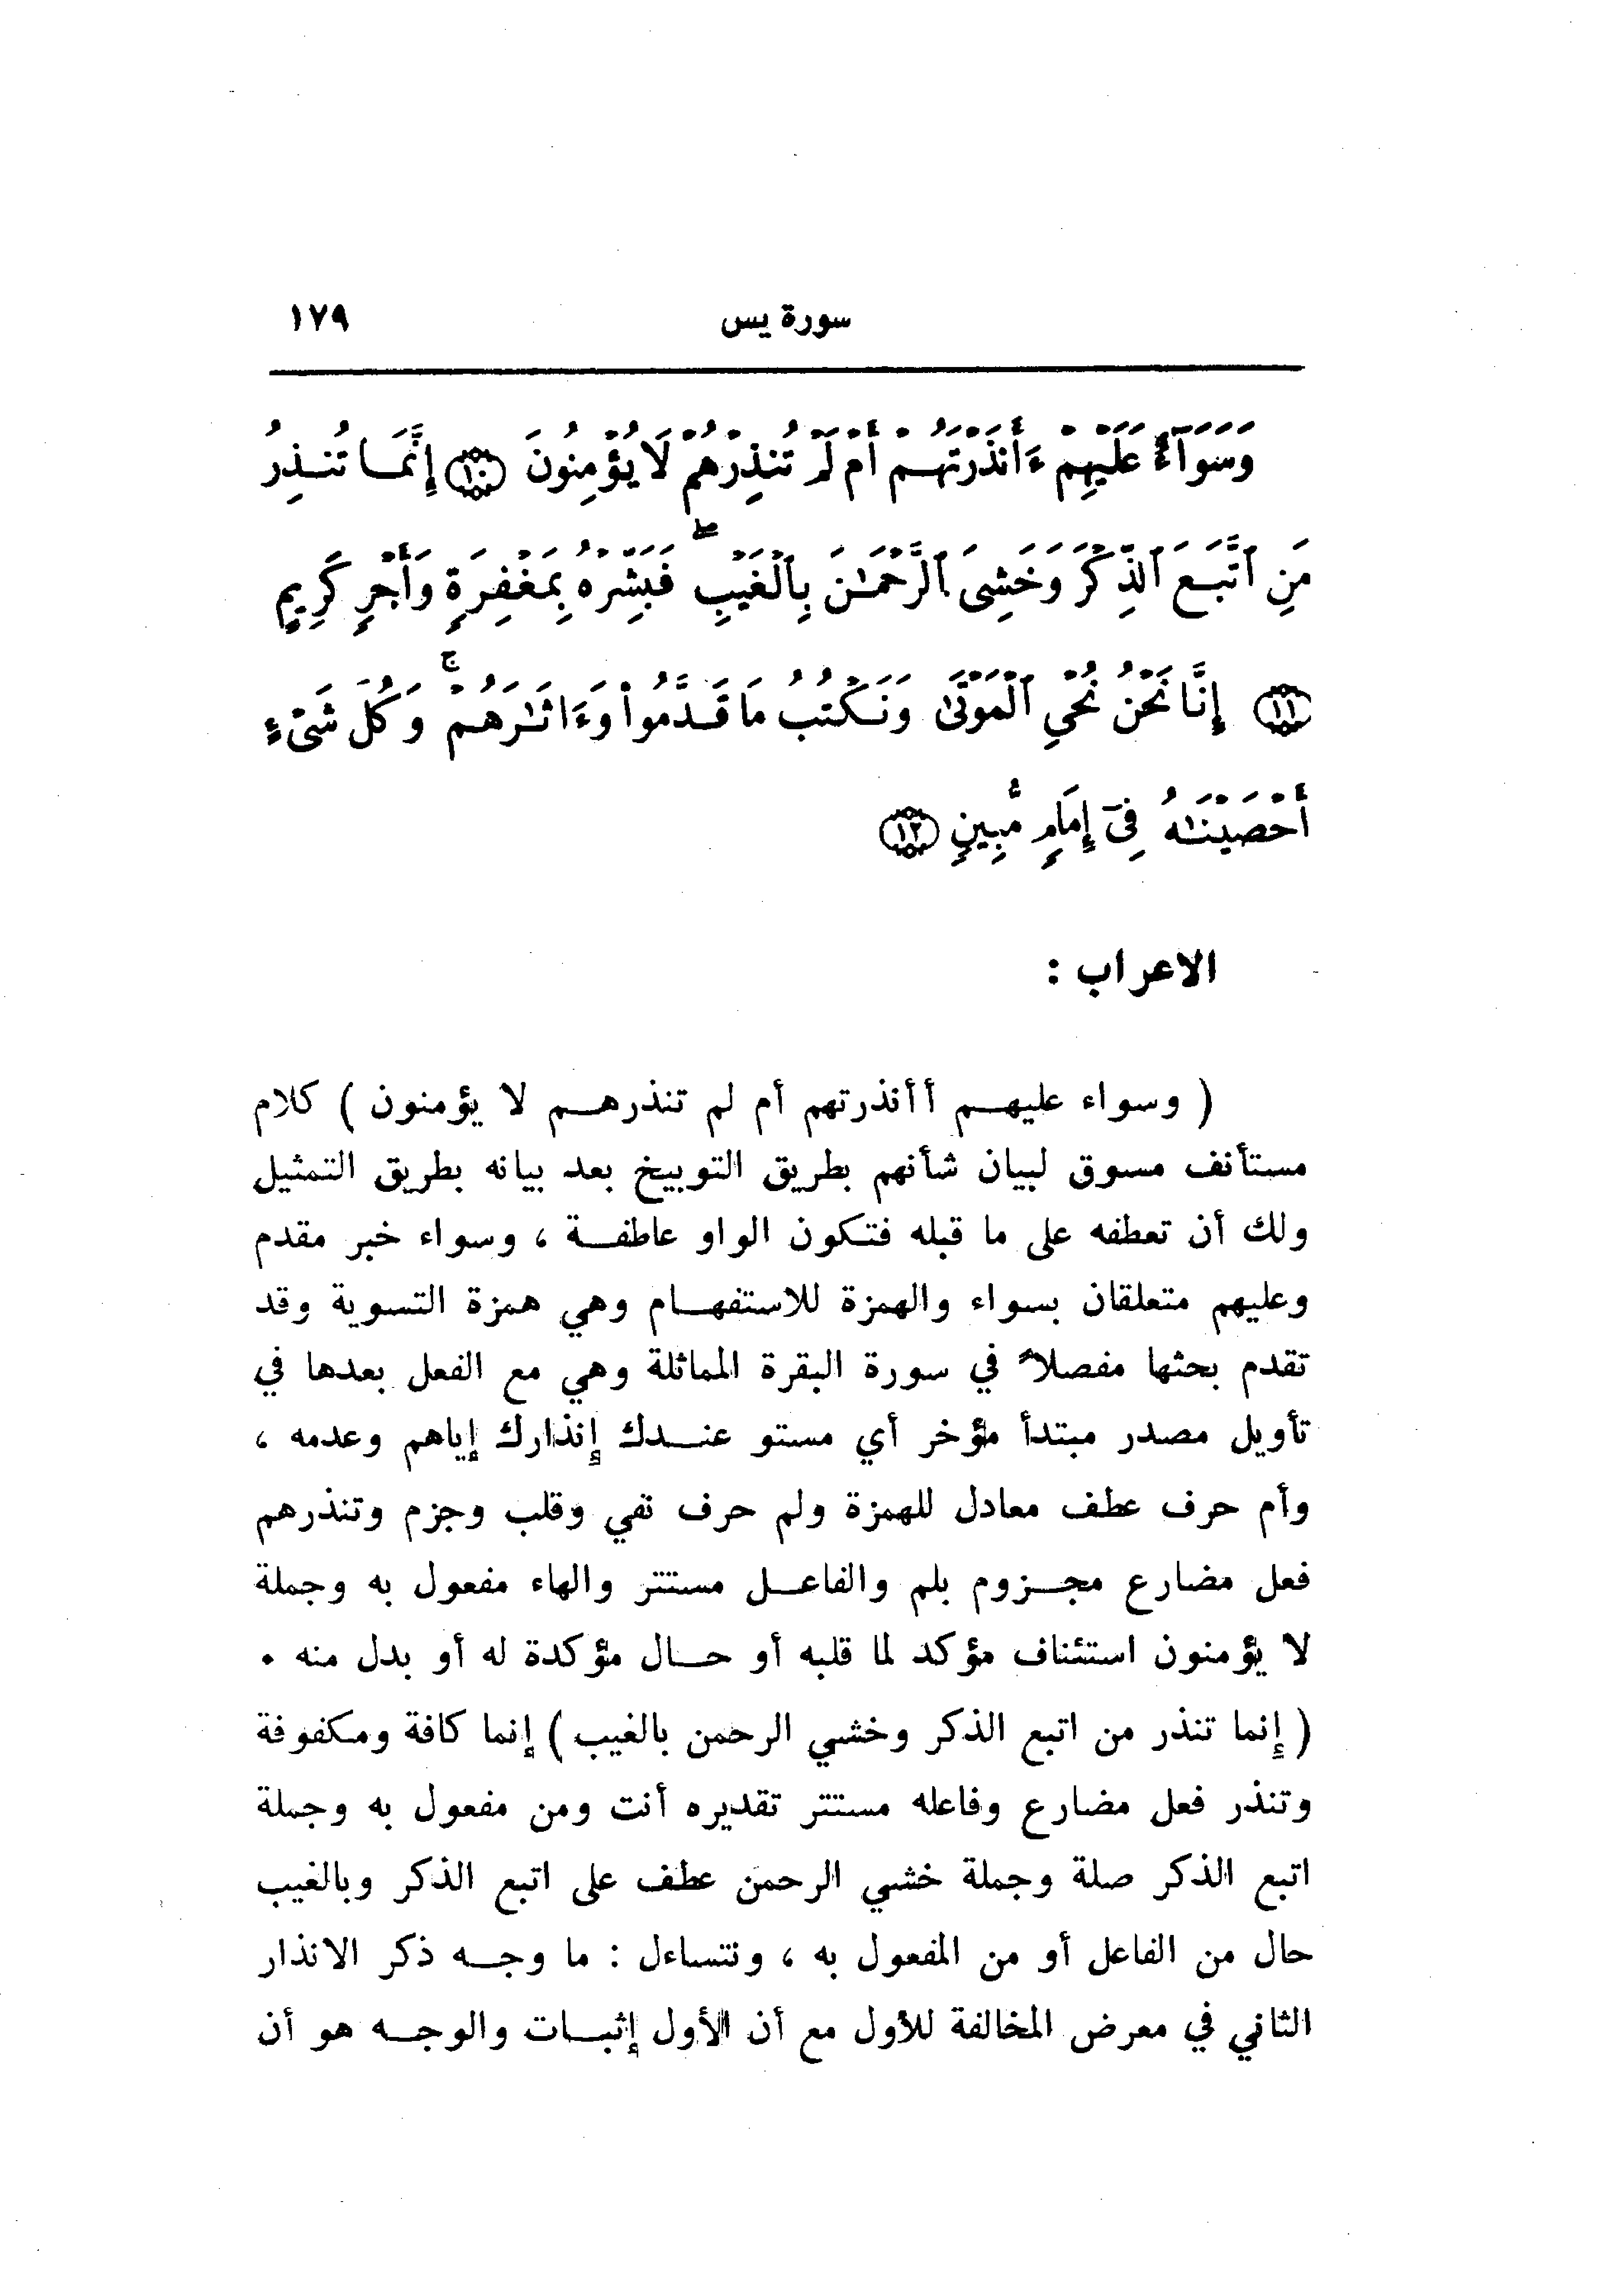 سورة يس ١٧٩
وَسَوَآءٌ عَلَيْهِمْ ءَأَنذَرْتَهُمْ أَمْ لَمْ تُنذِرْهُمْ لَا يُؤْمِنُونَ ١٠ إِنَّمَا تُنذِرُ
مَنِ ٱتَّبَعَ ٱلذِّكْرَ وَخَشِىَ ٱلرَّحْمَـٰنَ بِٱلْغَيْبِ ۖ فَبَشِّرْهُ بِمَغْفِرَةٍ وَأَجْرٍ كَرِيمٍ
١١ إِنَّا نَحْنُ نُحْىِ ٱلْمَوْتَىٰ وَنَكْتُبُ مَا قَدَّمُوا۟ وَءَاثَـٰرَهُمْ ۚ وَكُلَّ شَىْءٍ
أَحْصَيْنَـٰهُ فِىٓ إِمَامٍ مُّبِينٍ ١٢
الاعراب :
( وسواء عليهم أأنذرتهم أم لم تنذرهم لا يؤمنون ) كلام
مستأنف مسوق لبيان شأنهم بطريق التوبيخ بعد بيانه بطريق التمثيل
ولك أن تعطفه على ما قبله فتكون الواو عاطفة ، وسواء خبر مقدم
وعليهم متعلقان بسواء والهمزة للاستفهام وهي همزة التسوية وقد
تقدم بحثها مفصلاً في سورة البقرة المماثلة وهي مع الفعل بعدها في
تأويل مصدر مبتدأ مؤخر أي مستو عندك إنذارك إياهم وعدمه ،
وأم حرف عطف معادل للهمزة ولم حرف نفي وقلب وجزم وتنذرهم
فعل مضارع مجزوم بلم والفاعل مستتر والهاء مفعول به وجملة
لا يؤمنون استئناف مؤكد لما قلبه أو حال مؤكدة له أو بدل منه .
( إنما تنذر من اتبع الذكر وخشي الرحمن بالغيب ) إنما كافة ومكفوفة
وتنذر فعل مضارع وفاعله مستتر تقديره أنت ومن مفعول به وجملة
اتبع الذكر صلة وجملة خشي الرحمن عطف على اتبع الذكر وبالغيب
حال من الفاعل أو من المفعول به ، ونتساءل : ما وجه ذكر الانذار
الثاني في معرض المخالفة للأول مع أن الأول إثبات والوجه هو أن